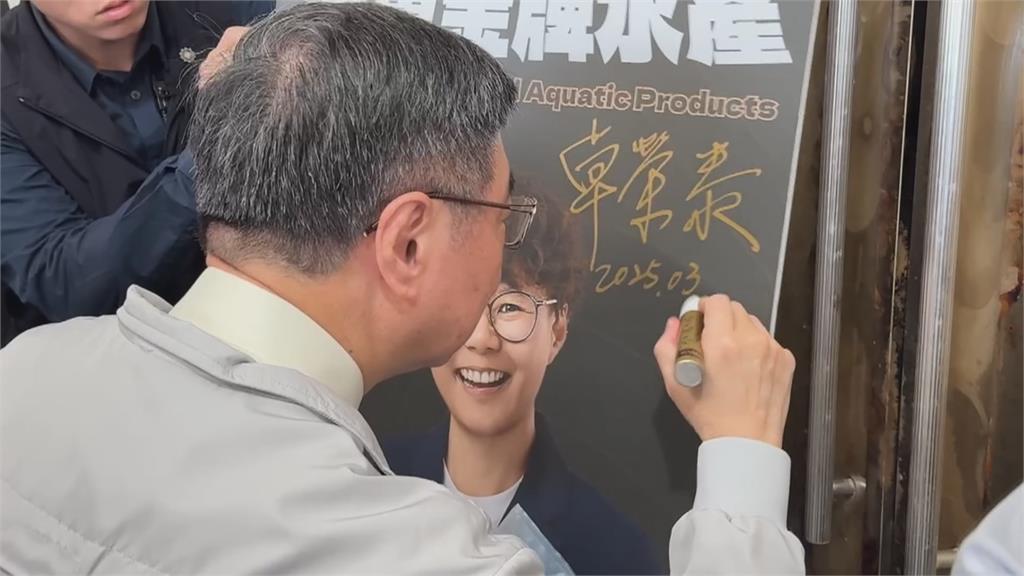 金牌水產
Aquatic Products
卓榮泰
2025.03